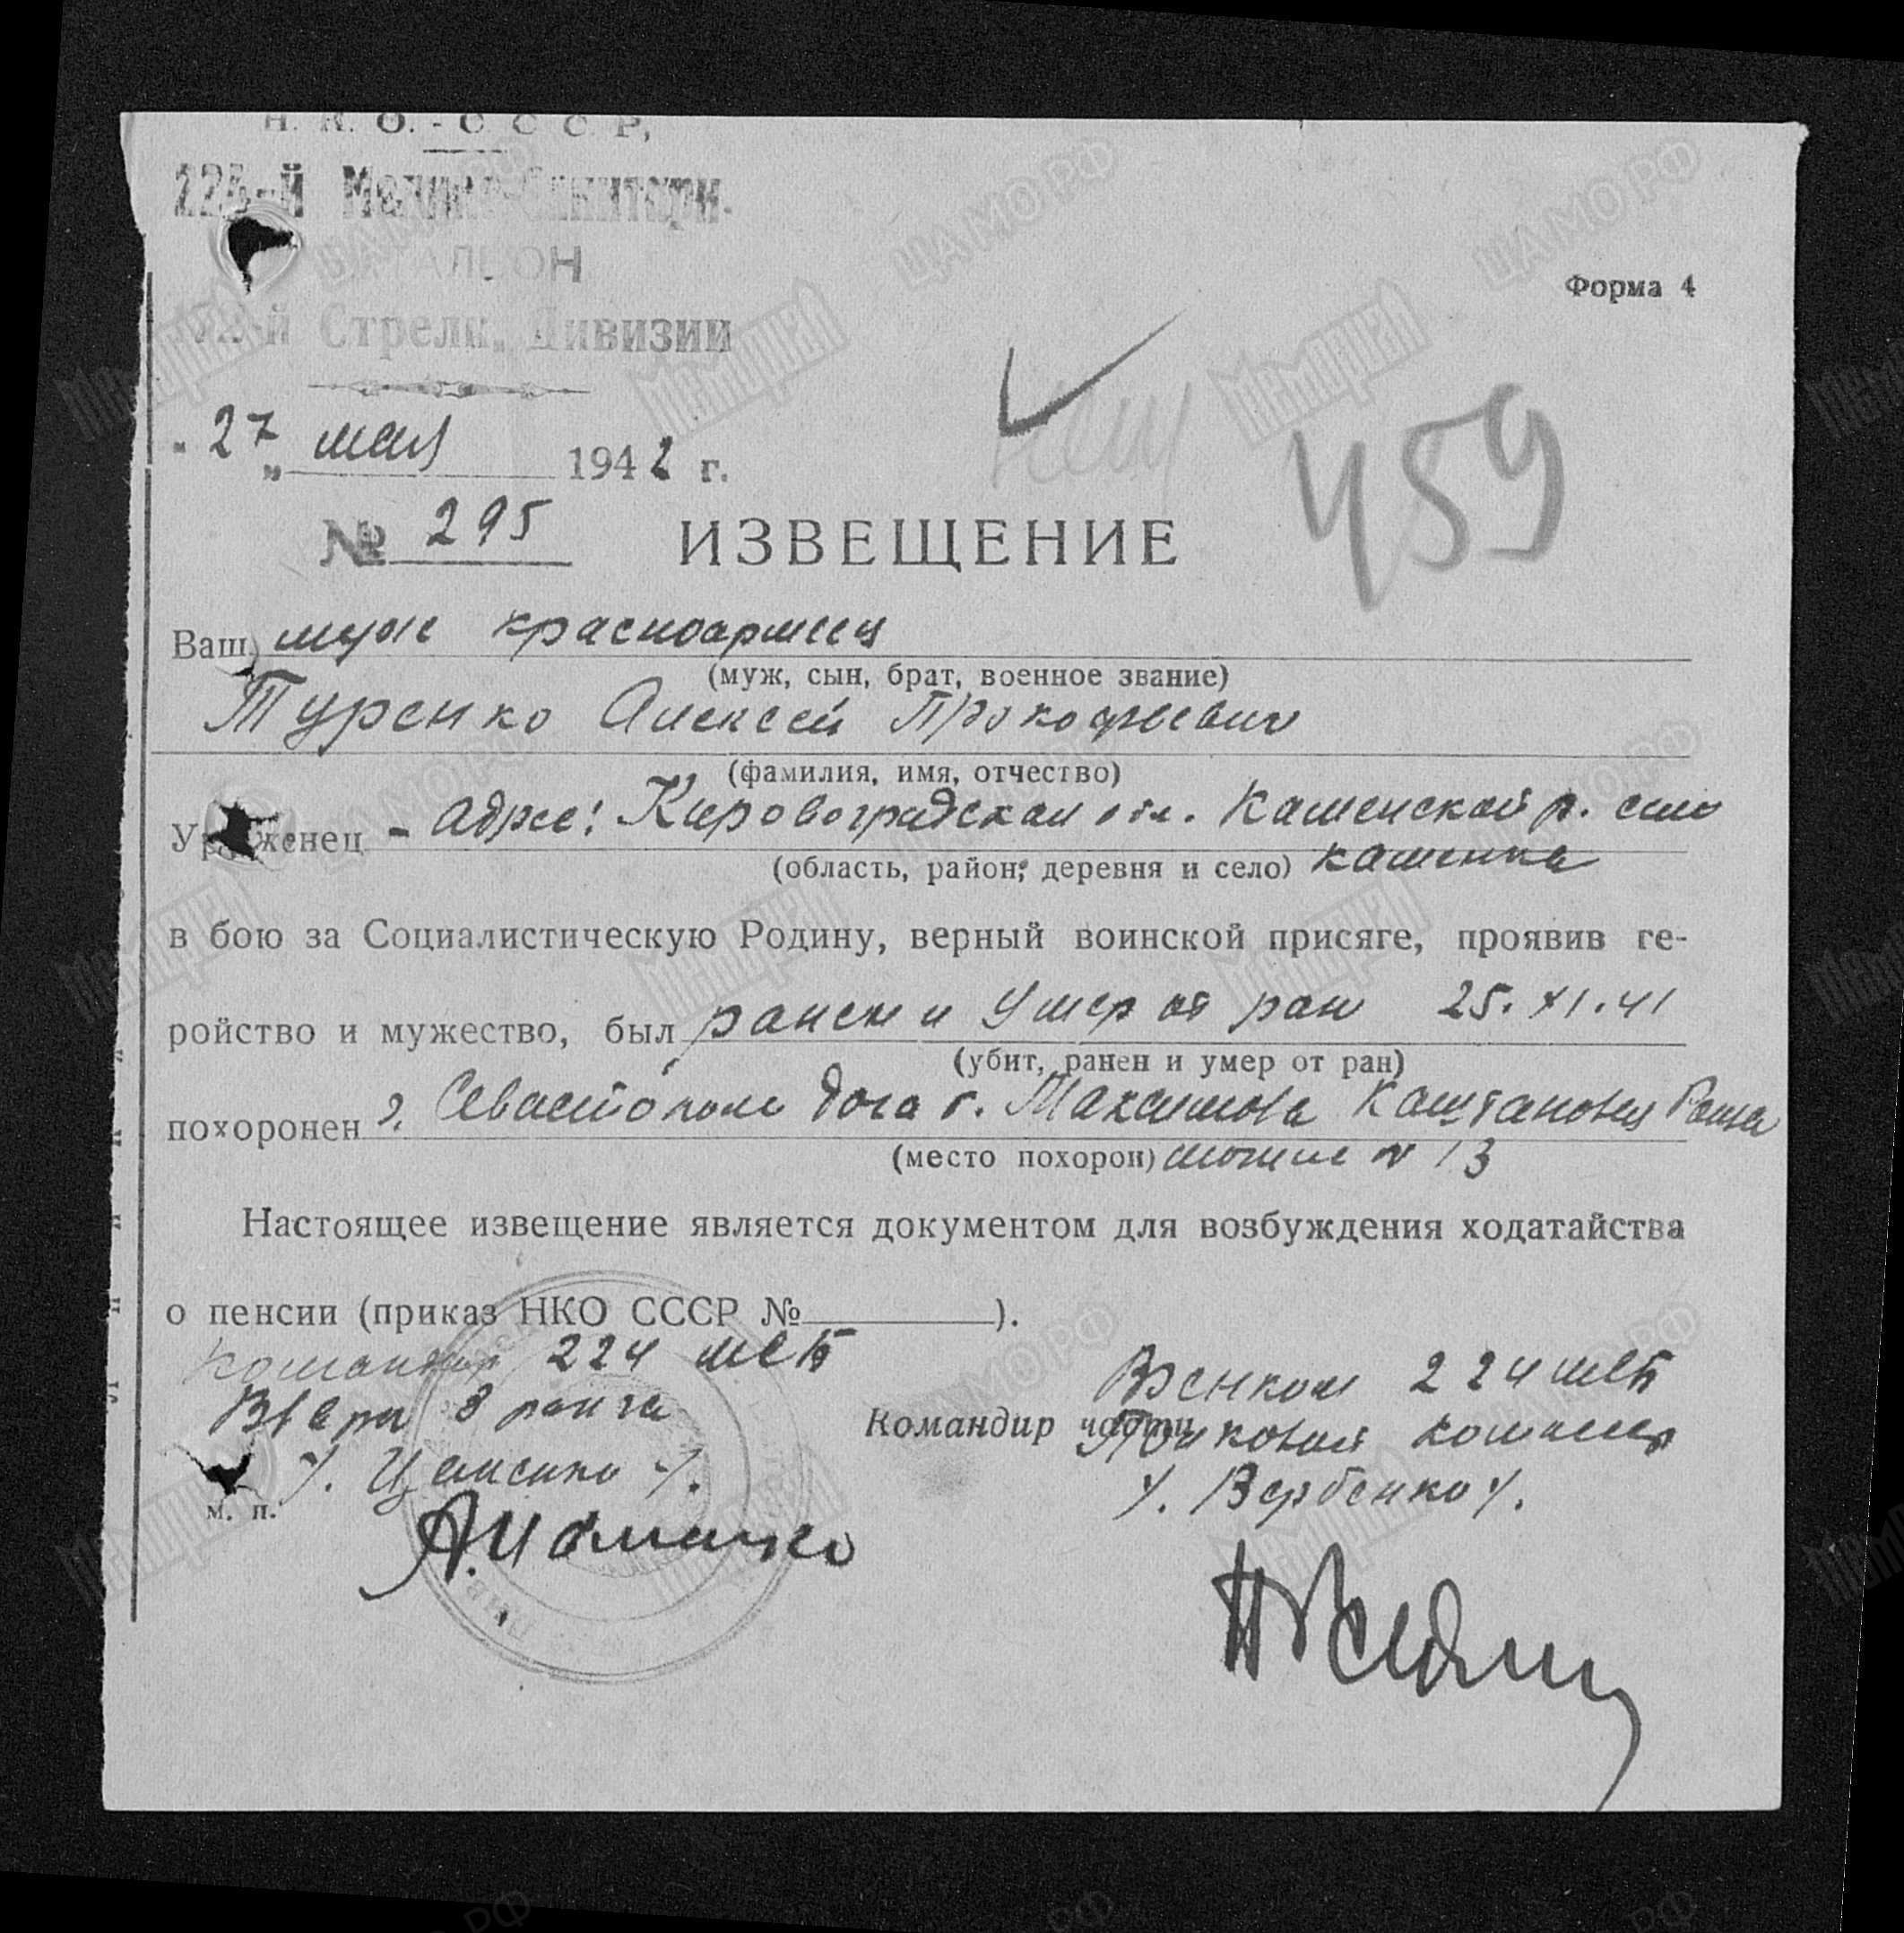 Н. К. О. - С С С Р,
224-й Медико-Санитарн.
БАТАЛЬОН
Стрелк. Дивизии
Форма 4
"27" мая 1942 г.
459
№ 295 ИЗВЕЩЕНИЕ
Ваш муж красноармеец
(муж, сын, брат, военное звание)
Туренко Алексей Прокофьевич
(фамилия, имя, отчество)
Уроженец - адрес: Кировоградская обл. Каменской р. село
(область, район, деревня и село) Каменка
в бою за Социалистическую Родину, верный воинской присяге, проявив ге-
ройство и мужество, был ранен и умер от ран 25.XI.41
(убит, ранен и умер от ран)
похоронен г. Севастополь дача г. Максимова Каштановая
(место похорон) могила № 13
Настоящее извещение является документом для возбуждения ходатайства
о пенсии (приказ НКО СССР № ).
Командир 224 мсб
Ввврач 3 ранга
м. п.
Военком 224 мсб
Командир части
комиссар
/. Вербенко /.
ЦАМО РФ
Мемориал